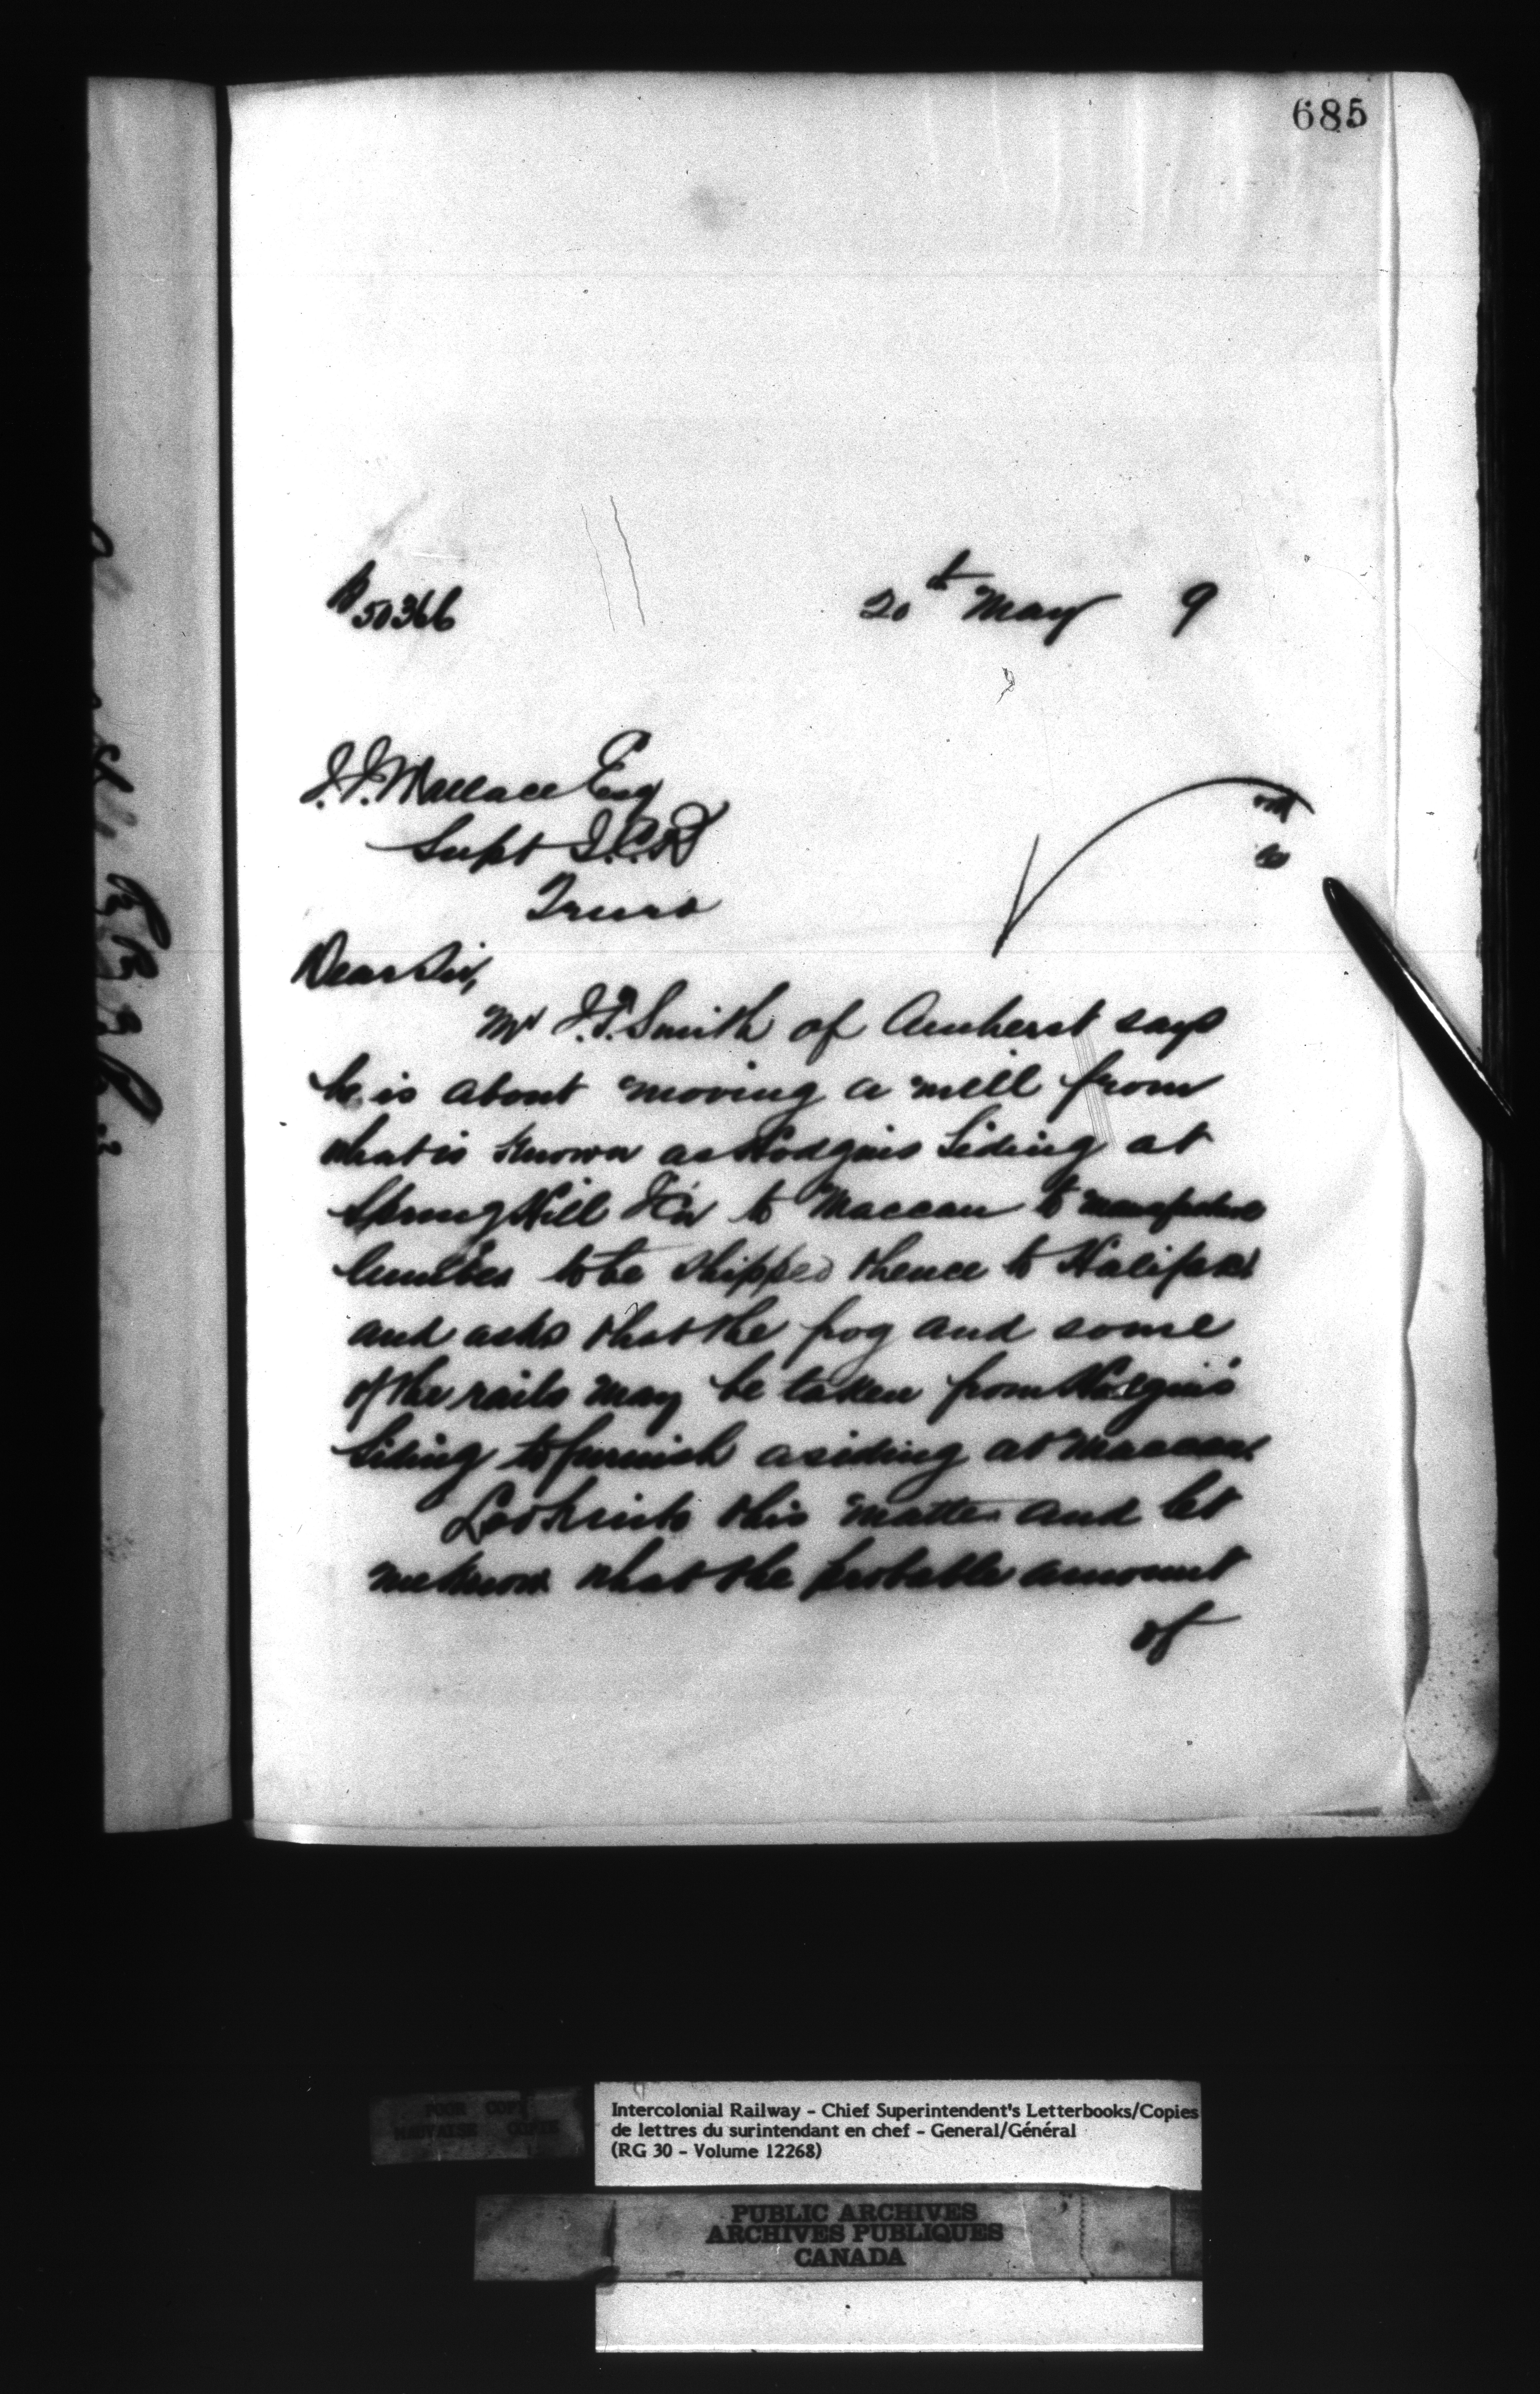 685
50366
20th May 9
J.J. Wallace Esq
Supt I.C.R
Truro
Dear Sir,
Mr J.T. Smith of Amherst says
he is about moving a mill from
what is known as Hodgins Siding at
Spring Hill Jcn to Maccan to manufacture
lumber to be shipped thence to Halifax
and asks that the frog and some
of the rails may be taken from Hodgins
Siding to furnish a siding at Maccan.
Look into this matter and let
me know what the probable amount
of
POOR COPY
MAUVAISE COPIE
Intercolonial Railway - Chief Superintendent's Letterbooks/Copies
de lettres du surintendant en chef - General/Général
(RG 30 - Volume 12268)
PUBLIC ARCHIVES
ARCHIVES PUBLIQUES
CANADA